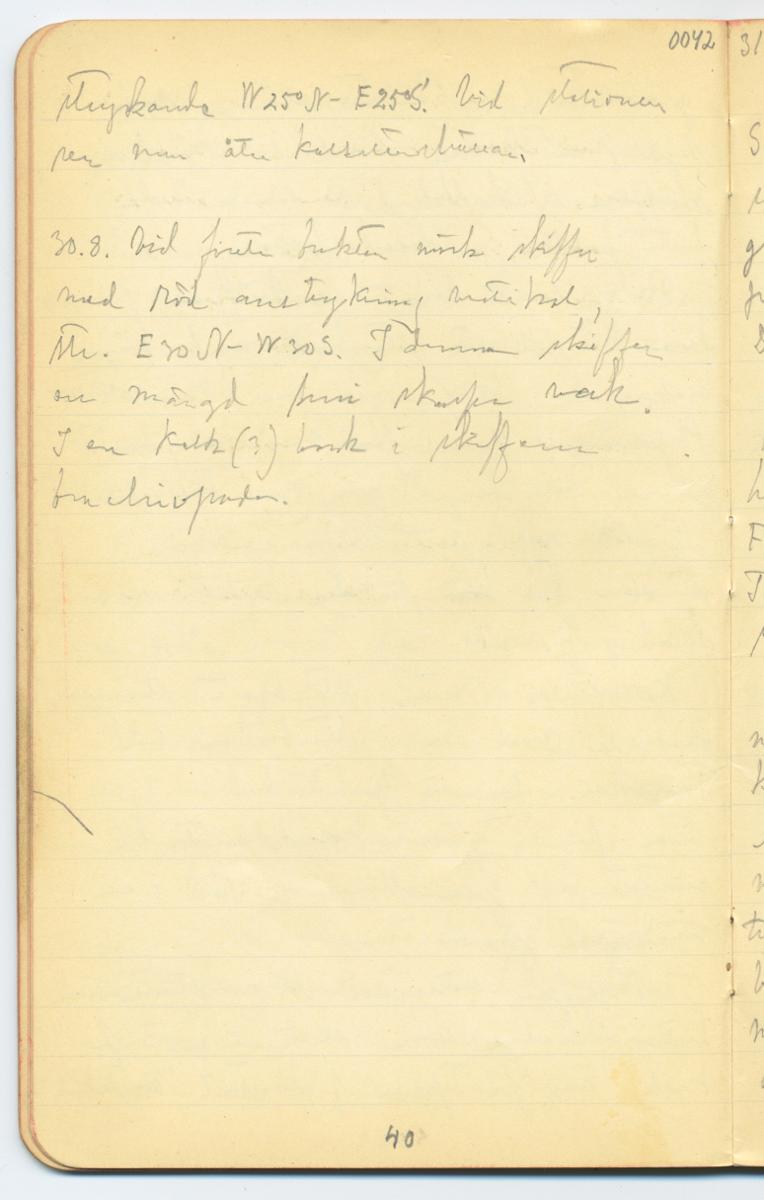 0042
strykande W25°N - E25°S. Vid stationen
ser man åter
30.8. Vid första bukten mörk skiffer
med röd anstrykning, vertikal,
str. E30N - W30S. I denna skiffer
en mängd små skarpa veck.
I en kalk(?) bank i skiffern
brachiopoder.
40